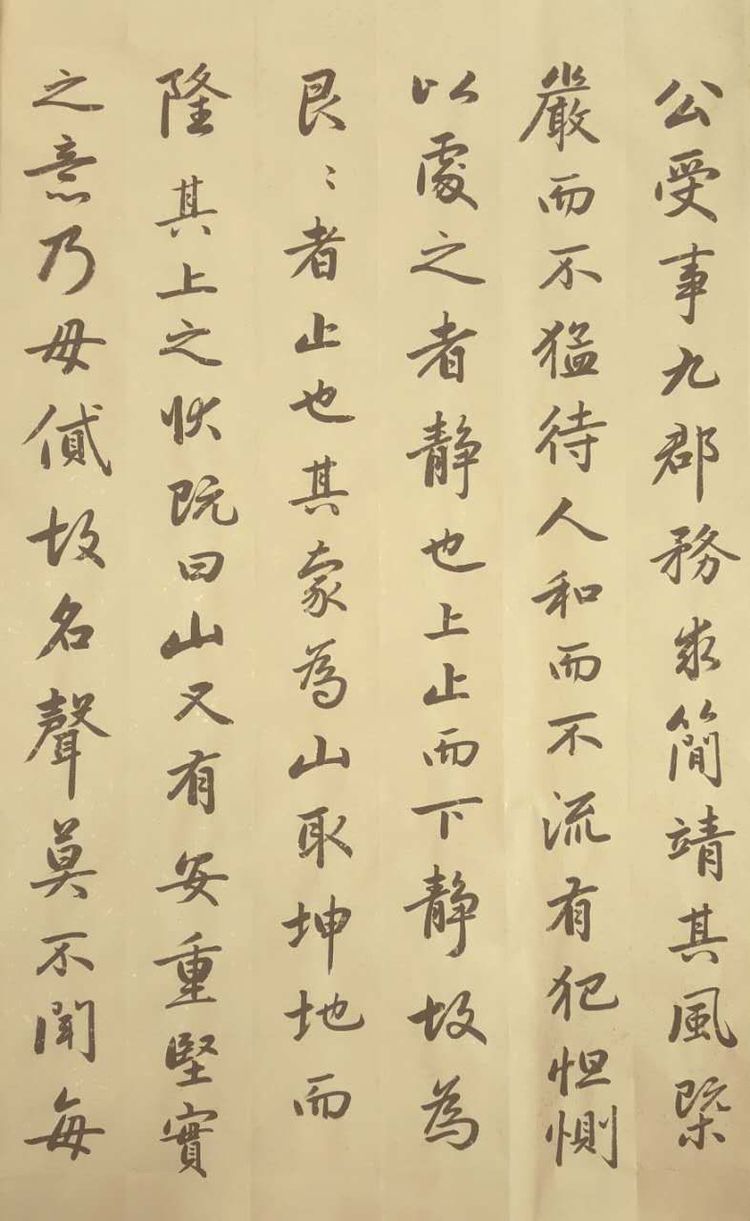 公受事九郡務求簡靖其風槩
嚴而不猛待人和而不流有犯怛惻
以處之者靜也上止而下靜故為
艮〻者止也其象為山取坤地而
隆其上之狀既曰山又有安重堅實
之意乃毋貳故名聲莫不聞每